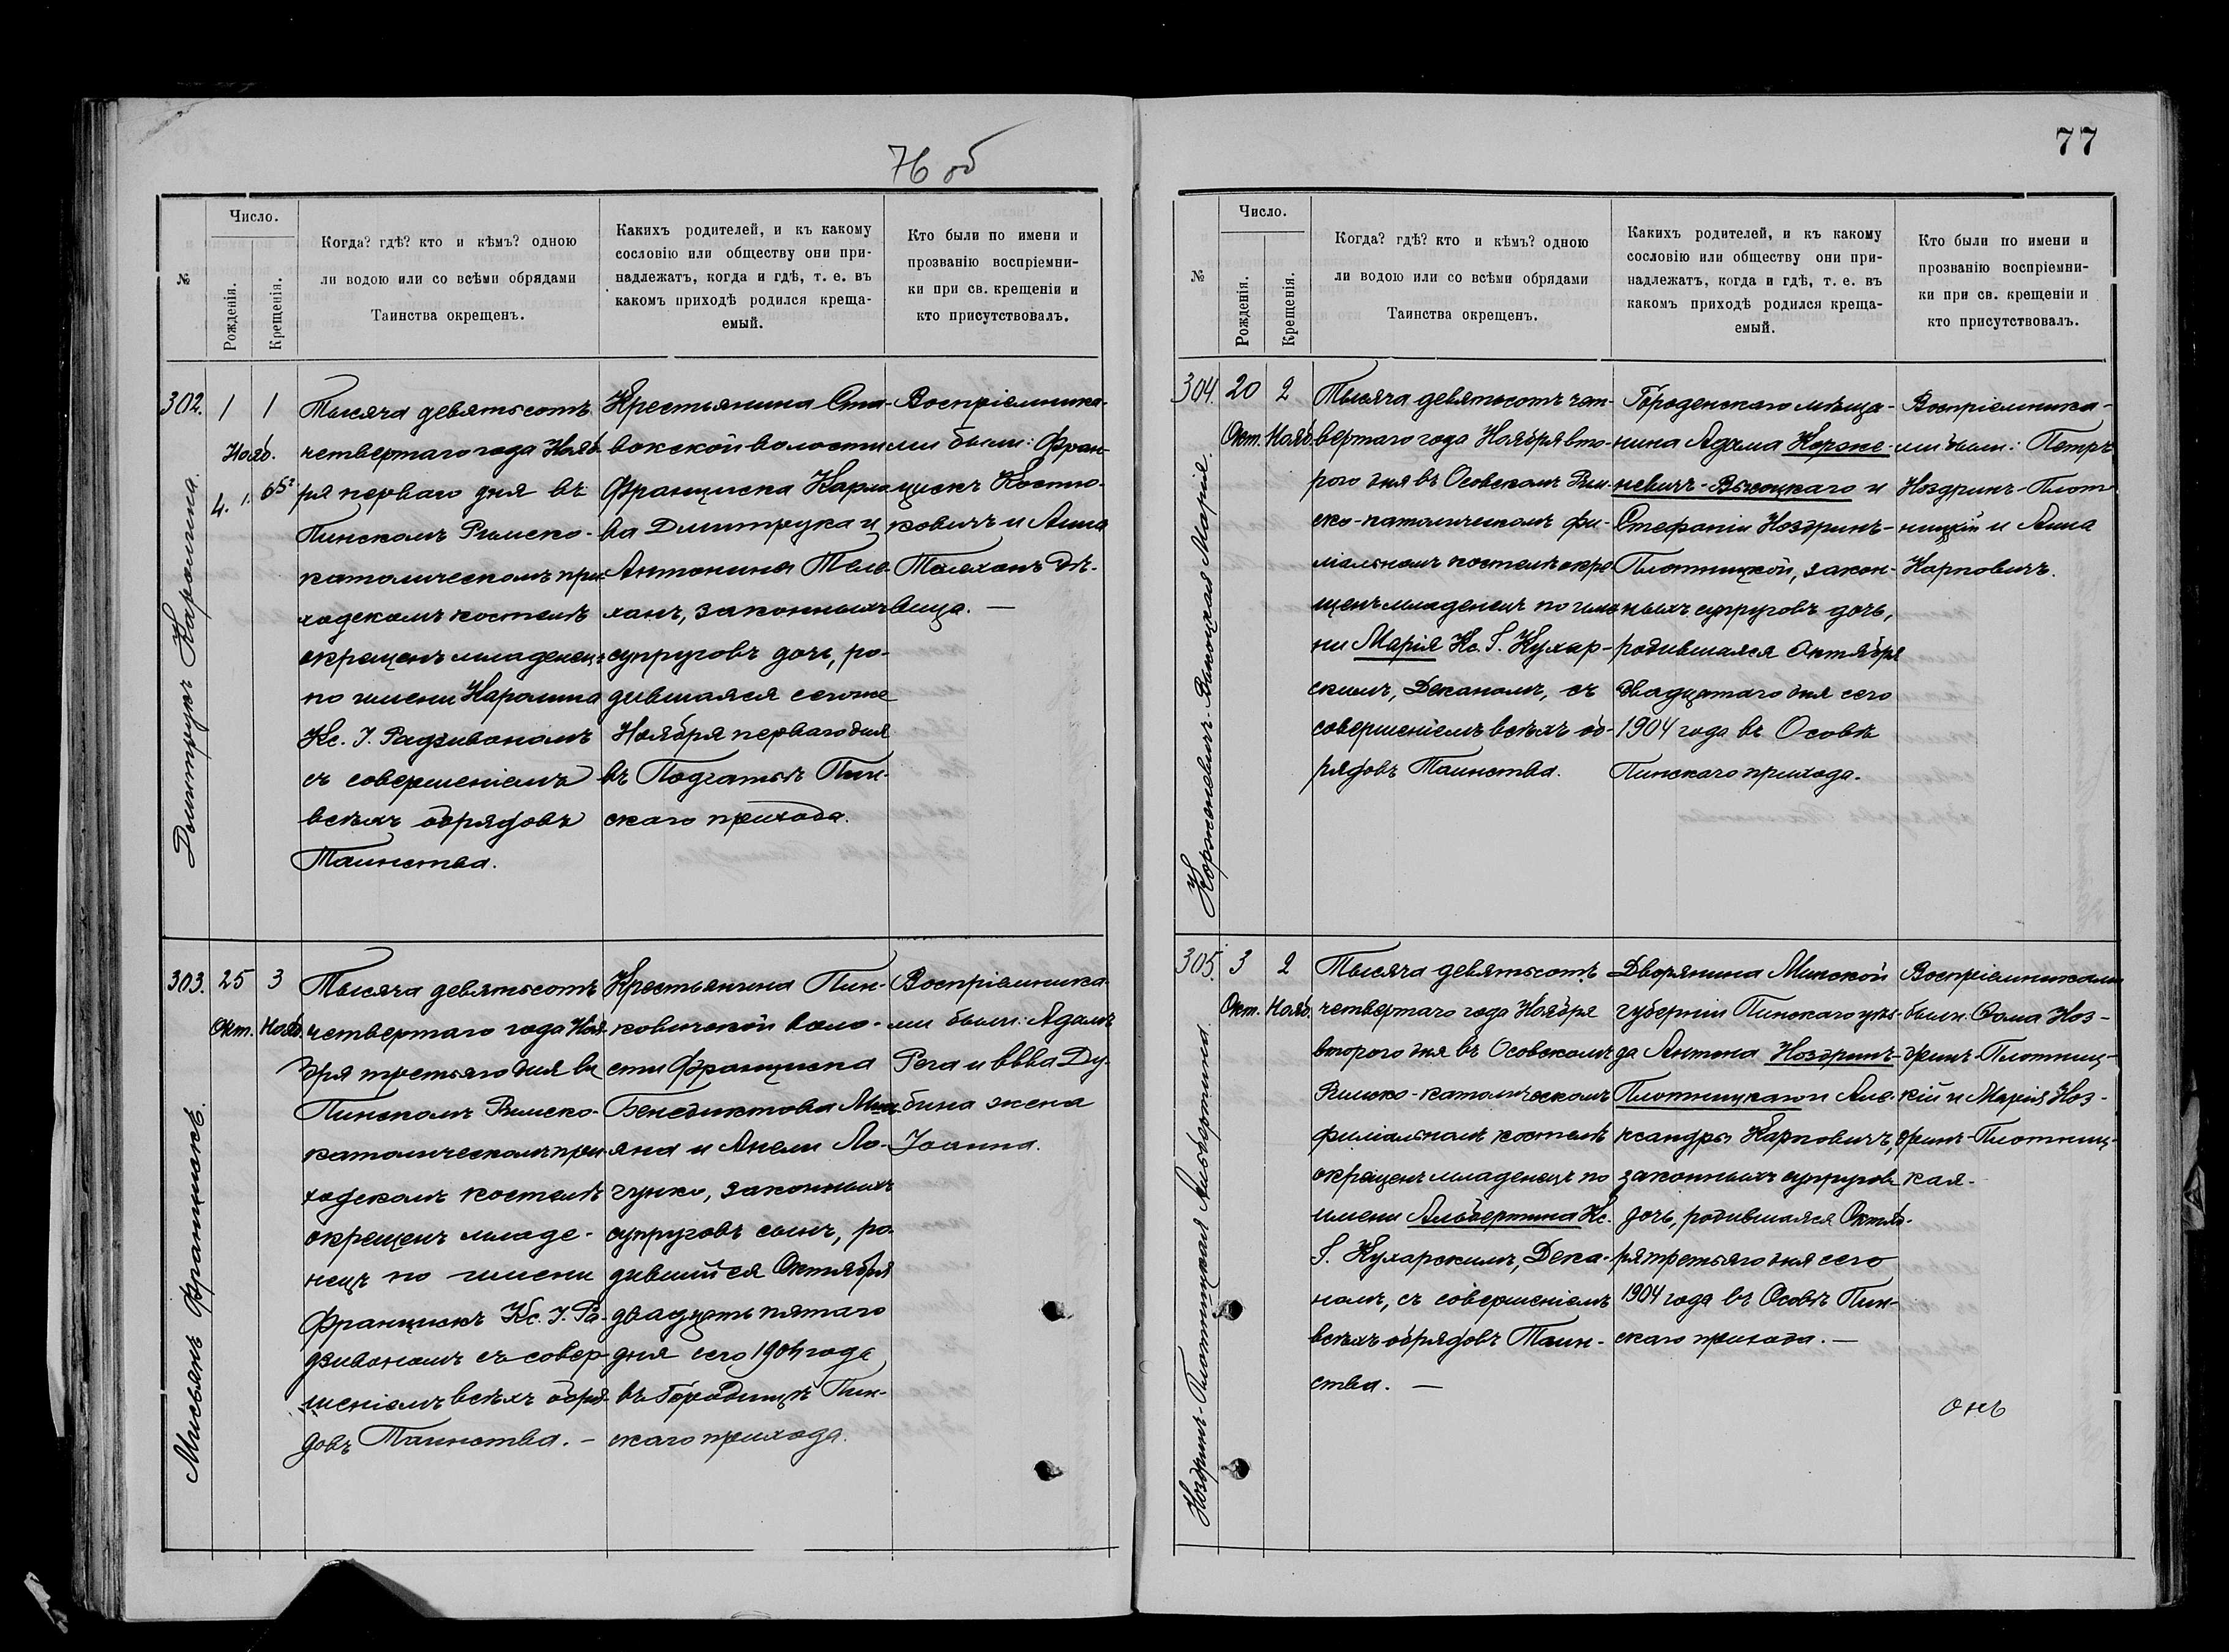 76 об
№
Число.
Рожденія.
Крещенія.
Когда? гдѣ? кто и кѣмъ? одною
ли водою или со всѣми обрядами
Таинства окрещенъ.
Какихъ родителей, и къ какому
сословію или обществу они при-
надлежатъ, когда и гдѣ, т. е. въ
какомъ приходѣ родился креща-
емый.
Кто были по имени и
прозванію воспріемни-
ки при св. крещеніи и
кто присутствовалъ.
302.
Дмитрукъ Каролина.
1
1
Нояб.
Тысяча девятьсотъ
четвертаго года Нояб-
ря перваго дня въ
Пинскомъ Римско-
католическомъ при-
ходскомъ костелѣ
окрещенъ младенецъ
по имени Каролина
Кс. І. Радзивономъ
съ совершеніемъ
всѣхъ обрядовъ
Таинства.
Крестьянина Ста-
вокской волости
Франциска Карло-
ва Дмитрука и
Антонины Теле-
ханъ, законныхъ
супруговъ дочь, ро-
дившаяся сегоже
Ноября перваго дня
въ Подгатьѣ Пин-
скаго прихода.
Воспріемника-
ми были: Фран-
цискъ Костю-
ковичъ и Анна
Телеханъ дѣ-
вица. —
303.
Мисьянъ Францискъ.
25
3
Окт.
Нояб.
Тысяча девятьсотъ
четвертаго года Ноя-
бря третьяго дня въ
Пинскомъ Римско-
католическомъ при-
ходскомъ костелѣ
окрещенъ младе-
нецъ по имени
Францискъ Кс. І. Ра-
дзивономъ съ совер-
шеніемъ всѣхъ обря-
довъ Таинства. —
Крестьянина Пин-
ковичской воло-
сти Франциска
Бенедиктова Мись-
яна и Анели Ло-
гунко, законныхъ
супруговъ сынъ, ро-
дившійся Октября
двадцать пятаго
дня сего 1904 года
въ Городищѣ Пин-
скаго прихода.
Воспріемника-
ми были: Адамъ
Рога и Евва Ду-
бина жена
Іоанна.
77
№
Число.
Рожденія.
Крещенія.
Когда? гдѣ? кто и кѣмъ? одною
ли водою или со всѣми обрядами
Таинства окрещенъ.
Какихъ родителей, и къ какому
сословію или обществу они при-
надлежатъ, когда и гдѣ, т. е. въ
какомъ приходѣ родился креща-
емый.
Кто были по имени и
прозванію воспріемни-
ки при св. крещеніи и
кто присутствовалъ.
304.
Корженевичъ-Высоцкая Марія.
20
2
Окт.
Нояб.
Тысяча девятьсотъ чет-
вертаго года Ноября вто-
рого дня въ Осовскомъ Рим-
ско-католическомъ фи-
ліальномъ костелѣ окре-
щенъ младенецъ по име-
ни Марія Кс. І. Кухар-
скимъ, Деканомъ, съ
совершеніемъ всѣхъ об-
рядовъ Таинства.
Городенскаго мѣща-
нина Адама Корже-
невичъ-Высоцкаго и
Стефаніи Ноздринъ-
Плотницкой, закон-
ныхъ супруговъ дочь,
родившаяся Октября
двадцатаго дня сего
1904 года въ Осовѣ
Пинскаго прихода.
Воспріемника-
ми были: Петръ
Ноздринъ-Плот-
ницкій и Анна
Карповичъ.
305.
Ноздринъ-Плотницкая Альбертина.
3
2
Окт.
Нояб.
Тысяча девятьсотъ
четвертаго года Ноября
второго дня въ Осовскомъ
Римско-католическомъ
филіальномъ костелѣ
окрещенъ младенецъ по
имени Альбертина Кс.
І. Кухарскимъ, Дека-
номъ, съ совершеніемъ
всѣхъ обрядовъ Таин-
ства. —
Дворянина Минской
губерніи Пинскаго уѣз-
да Антона Ноздринъ-
Плотницкаго и Але-
ксандры Карповичъ,
законныхъ супруговъ
дочь, родившаяся Октяб-
ря третьяго дня сего
1904 года въ Осовѣ Пин-
скаго прихода. —
Воспріемниками
были: Ѳома Ноз-
дринъ-Плотниц-
кій и Марія Ноз-
дринъ-Плотниц-
кая.